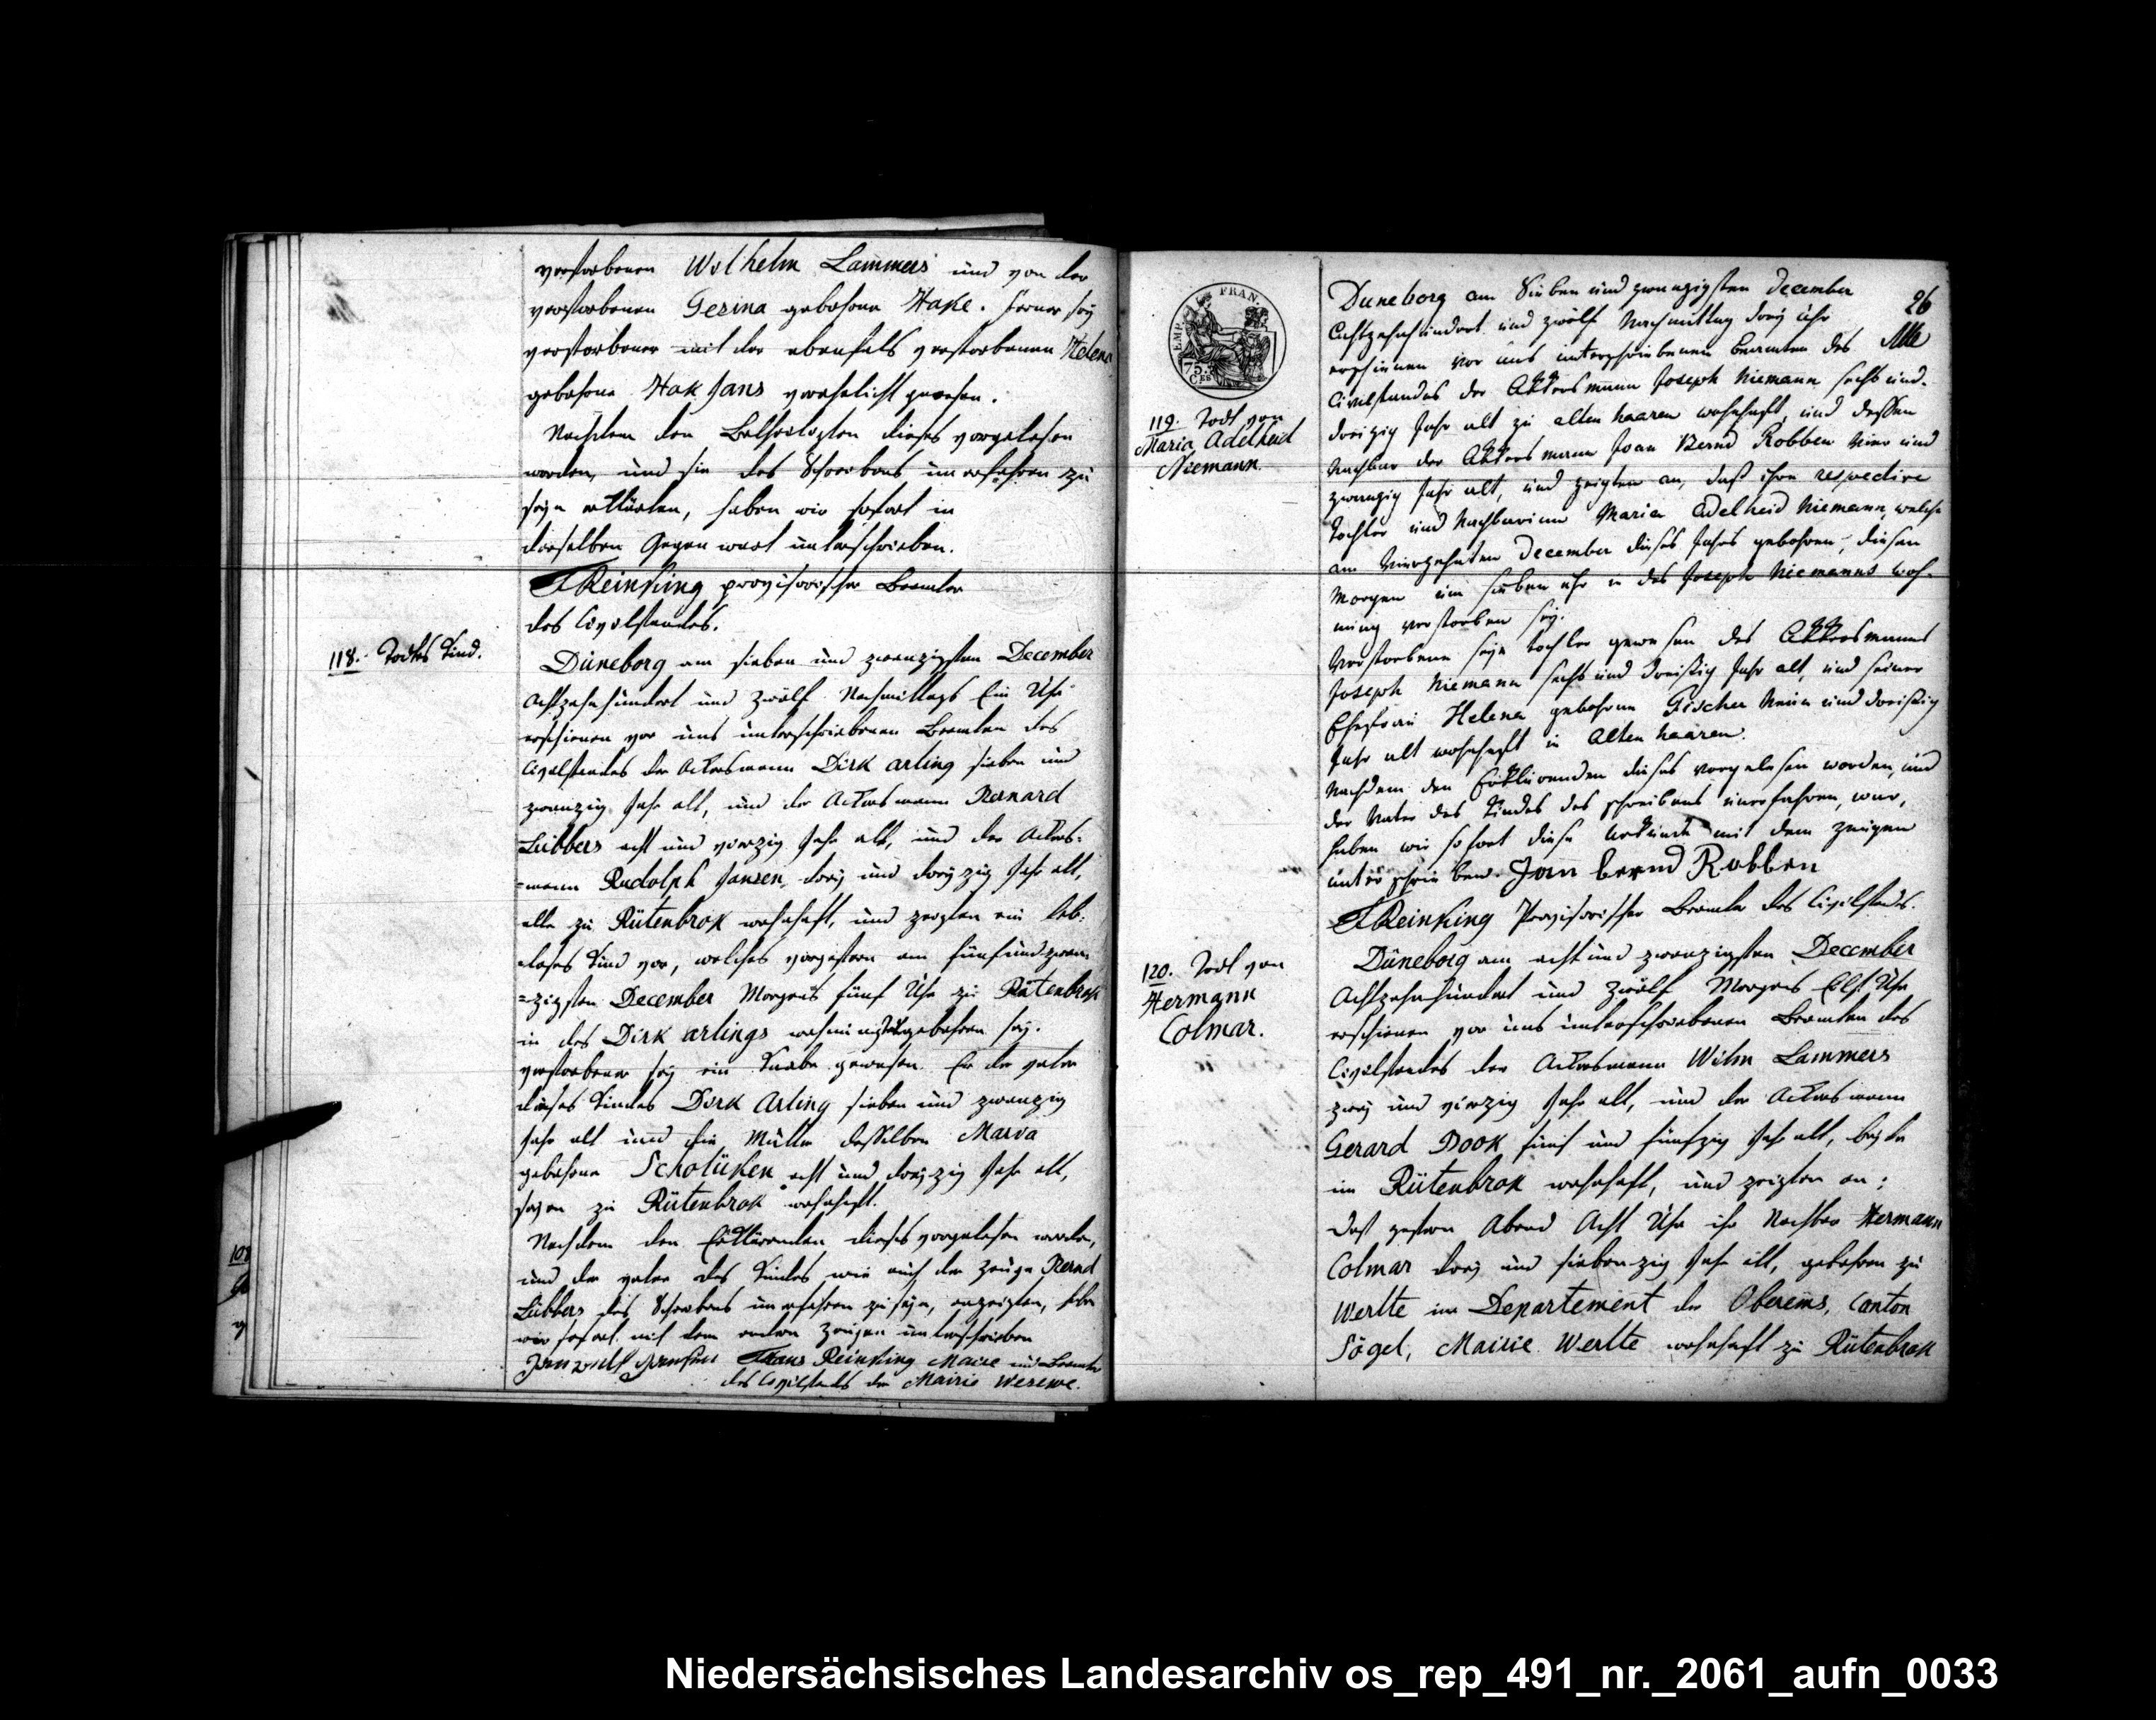 verstorbenen Wilhelm Lammers und von der
verstorbenen Gesina gebohrne Hake. Ferner sey
verstorbener mit der ebenfals verstorbenen Helena
gebohrne Hak Jans verehelicht gewesen.
Nachdem den Betheiligten dieses vorgelesen
worden, und sie des Schreibens unerfahren zu
seyn erklärten, haben wir sofort in
derselben Gegenwart unterschrieben.
FReinking provisorischer Beamter
des Civilstandes.
118. Todtes Kind.
Düneborg am sieben und zwanzigsten December
Achtzehnhundert und zwölf Nachmittags Ein Uhr
erschienen vor uns unterschriebenen Beamten des
Civilstandes der Ackersmann Dirk Arling sieben und
zwanzig Jahr alt, und der Ackersmann Bernard
Lübbers acht und vierzig Jahr alt, und der Ackers=
=mann Rudolph Jansen, drey und dreyzig Jahr alt,
alle zu Rütenbrok wohnhaft, und zeigten ein leb=
=loses Kind vor, welches vorgestern am fünfundzwan
=zigsten December Morgens fünf Uhr zu Rütenbrok
in des Dirk Arlings wohnung gebohren sey.
verstorbener sey ein Knabe gewesen. Er der vater
dieses Kindes Dirk Arling sieben und zwanzig
Jahr alt und die Mutter desselben Maria
gebohrne Scholüken acht und dreyzig Jahr alt,
seyen zu Rütenbrok wohnhaft.
Nachdem den Erklärenden dieses vorgelesen worden,
und der vater des Kindes wie auch der Zeuge Bernd
Lübbers des Schreibens unerfahren zu seyn, anzeigten, haben
wir sofort mit dem andern Zeugen unterschrieben
Jansen Frans Reinking Maire und Beamter
des Civilstands der Mairie Wesuwe.
108
TIMP. FRAN.
75.
CES
26
119. Todt von
Maria Adelheid
Niemann.
Duneborg am Sieben und zwanzigsten December
Achtzehnhundert und zwölf Nachmittag drey Uhr
erschienen vor uns unterschriebenen Beamten des
Civilstandes der Akkersmann Joseph Niemann sechs und-
dreizig Jahr alt zu alten haaren wohnhaft, und dessen
Nachbar der Akkersmann Joan Bernd Robben Vier und
zwanzig Jahr alt, und zeigten an, daß ihre respective
Tochter und Nachbarinn Maria Adelheid Niemann, welche
am Vierzehnten December dieses Jahrs gebohren, diesen
Morgen um sieben uhr in des Joseph Niemanns woh-
nung verstorben sey.
Verstorbene seye tochter gewesen des Akkersmanns
Joseph Niemann sechs und dreißig Jahr alt, und seiner
Ehefrau Helena gebohrne Fischer Neun und dreißig
Jahr alt wohnhaft in Alten haaren.
Nachdem den Erklärenden dieses vorgelesen worden, und
der Vater des Kindes des schreibens unerfahren, war,
haben wir sofort diese Urkunde mit dem zeugen
unterschrieben. Jan bernd Robben
FReinking Provisorischer Beamter des Civilstandes.
120. Todt von
Hermann
Colmar.
Düneborg am acht und zwanzigsten December
Achtzehnhundert und zwölf Morgens Elf Uhr
erschienen vor uns unterschriebenen Beamten des
Civilstandes der Ackersmann Wilm Lammers
zwey und vierzig Jahr alt, und der Ackersmann
Gerard Dook fünf und fünfzig Jahr alt, beyde
im Rütenbrok wohnhaft, und zeigten an:
daß gestern Abend Acht Uhr ihr Nachbar Hermann
Colmar drey und siebenzig Jahr alt, gebohren zu
Werlte im Departement der Oberems, Canton
Sögel, Mairie Werlte wohnhaft zu Rütenbrok
Niedersächsisches Landesarchiv os_rep_491_nr._2061_aufn_0033